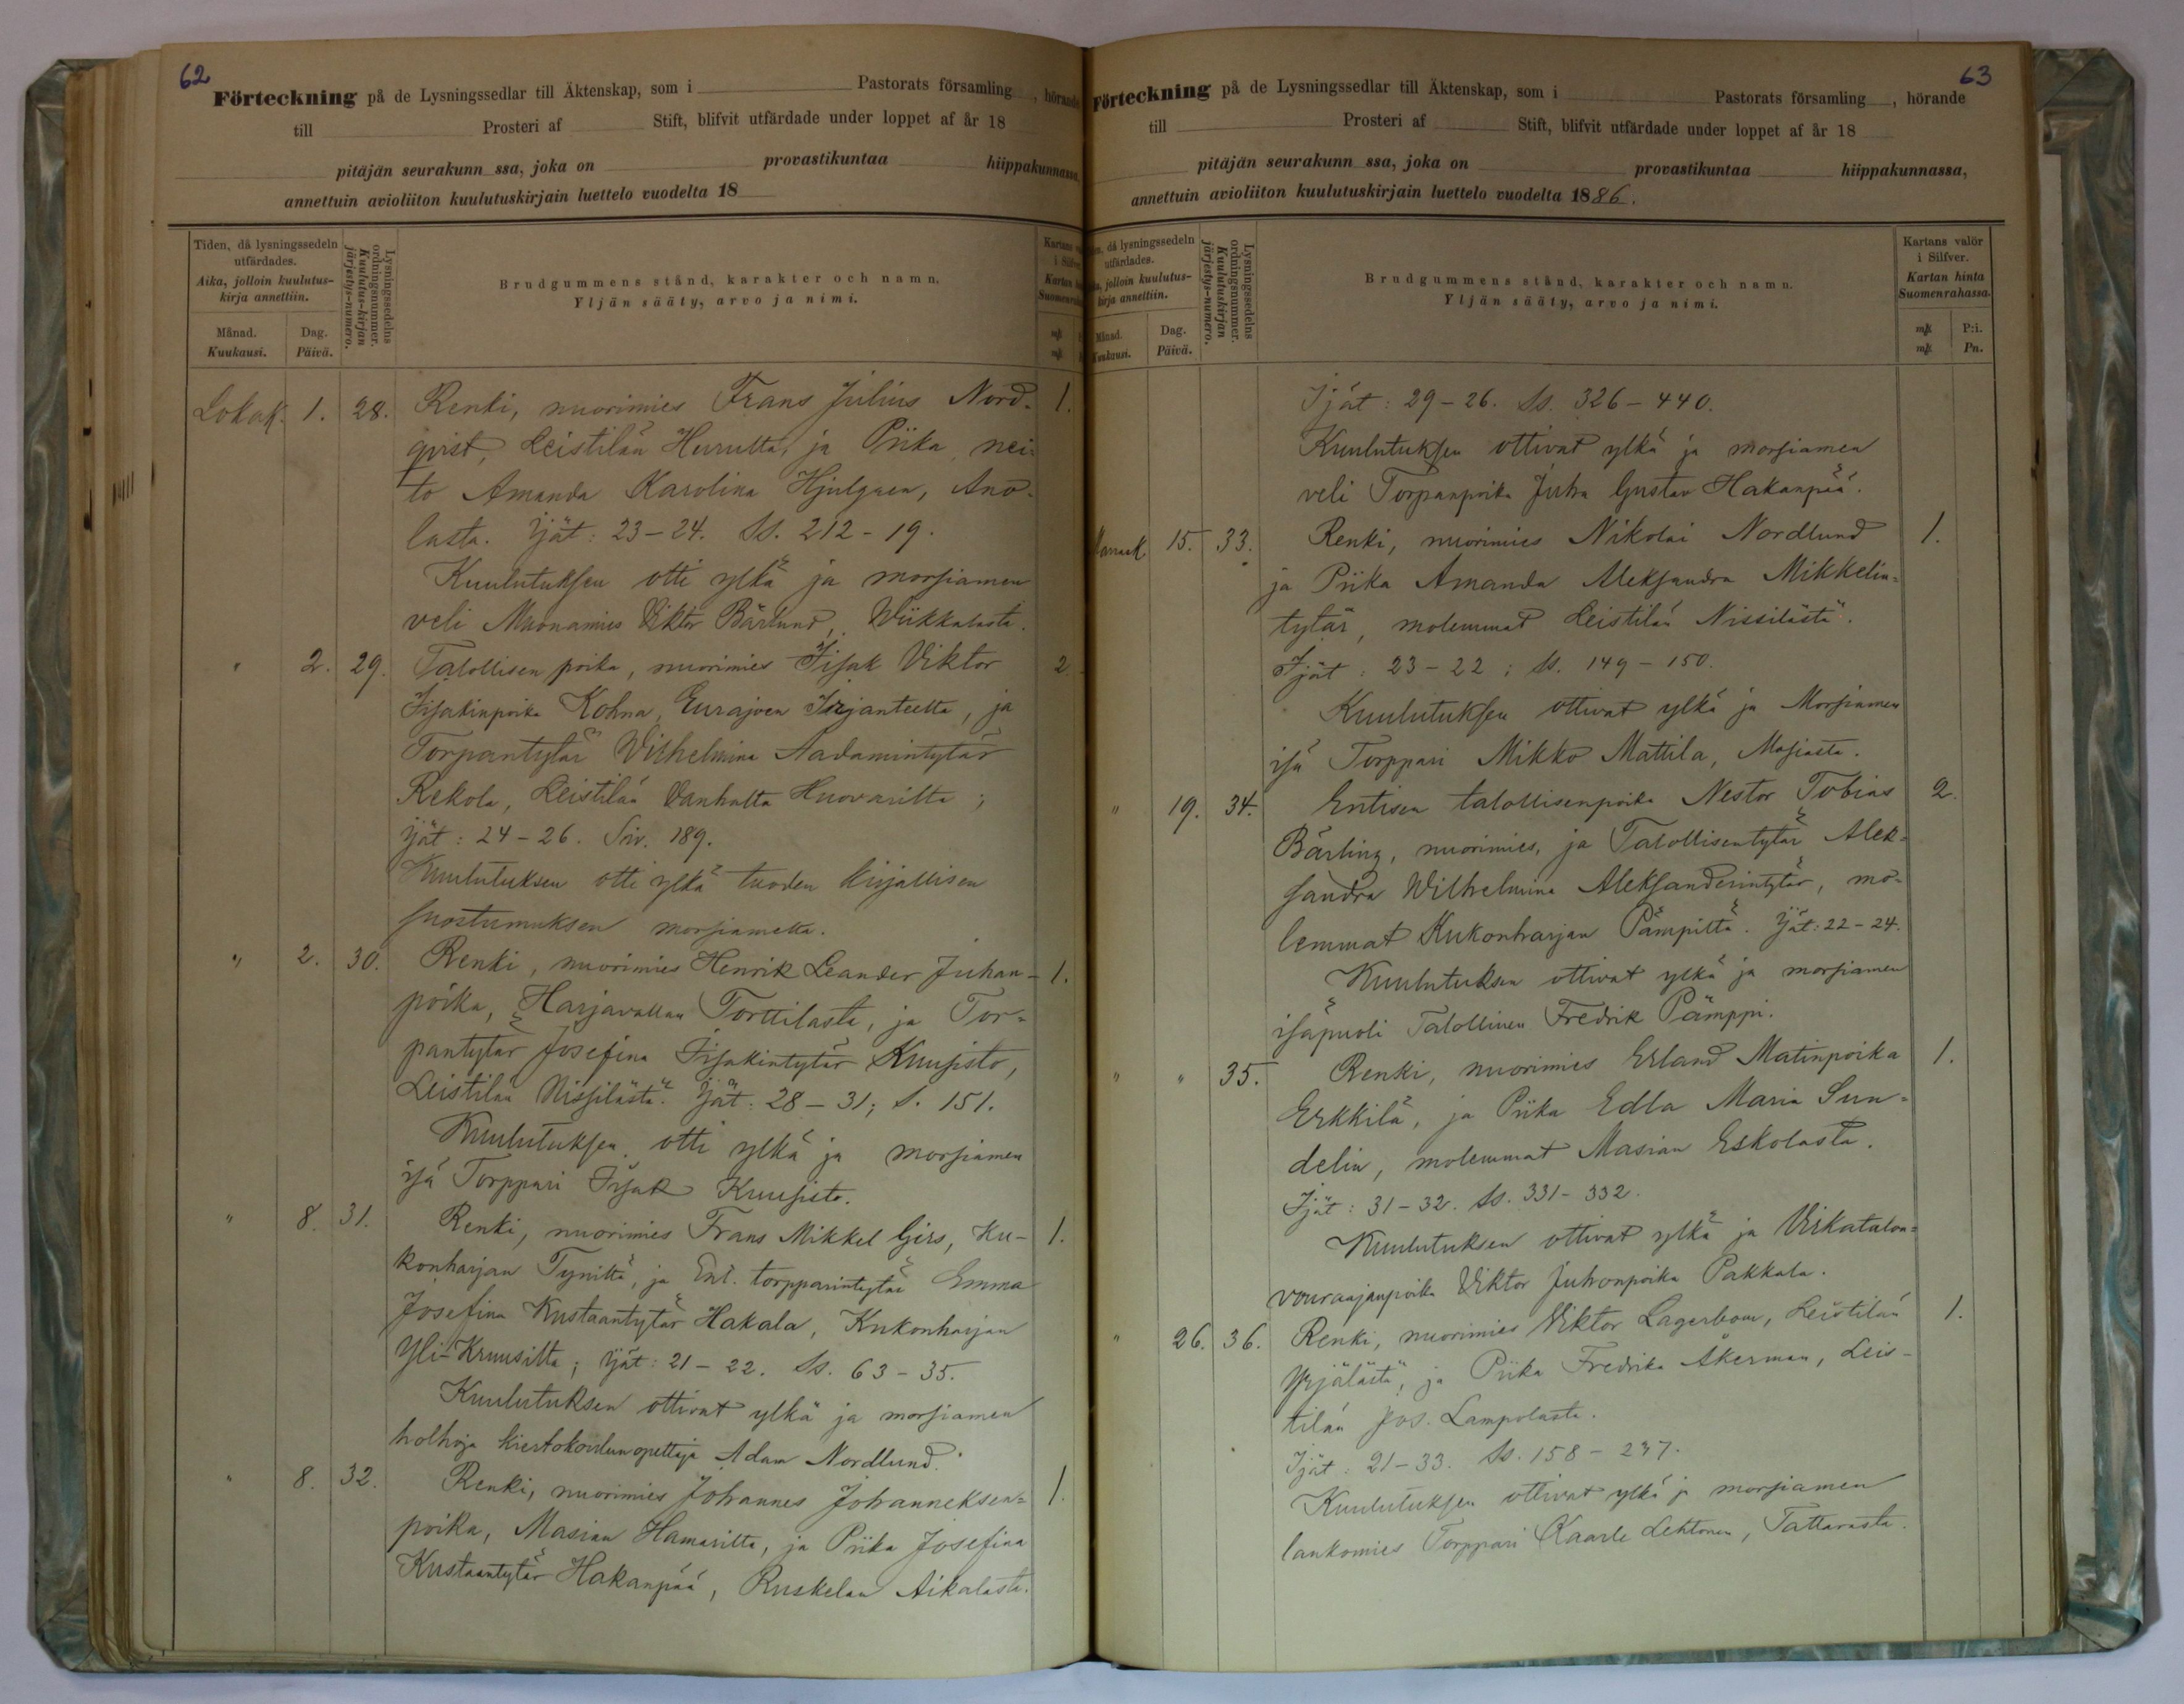 62
Förteckning på de Lysningssedlar till Äktenskap, som i Pastorats församling, hörande
till Prosteri af Stift, blifvit utfärdade under loppet af år 18
pitäjän seurakunn ssa, joka on provastikuntaa hiippakunnassa,
annettuin avioliiton kuulutuskirjain luettelo vuodelta 18
Tiden, då lysningssedeln utfärdades.
Aika, jolloin kuulutus-kirja annettiin.
Månad. Dag.
Kuukausi. Päivä.
Lysningssedelns ordningsnummer.
Kuulutus-kirjan järjestys-numero.
Brudgummens stånd, karakter och namn.
Yljän sääty, arvo ja nimi.
Lokak. 1. 28. Renki, nuorimies Frans Julius Nord- 1.
qvist, Leistilän Hurulta, ja Piika, nei-
to Amanda Karolina Hjulgren, Ano-
lasta. Ijät: 23-24. Ss. 212-19.
Kuulutuksen otti ylkä ja morsiamen
veli Muonamies Viktor Bärlund, Wiikkalasta.
" 2. 29. Talollisen poika, nuorimies Iisak Viktor 2
Iisakinpoika Kohna, Eurajoen Irjanteelta, ja
Torpantytär Wilhelmina Aadamintytär
Rekola, Leistilän Vanhalta Huovarilta;
Ijät: 24-26. Siv. 189.
Kuulutuksen otti ylkä tuoden kirjallisen
suostumuksen morsiamelta.
" 2. 30. Renki, nuorimies Henrik Leander Juhan- 1.
poika, Harjavallan Torttilasta, ja Tor-
pantytär Josefina Iisakintytär Kuusisto,
Leistilän Nissilästä. Ijät: 28-31; S. 151.
Kuulutuksen otti ylkä ja morsiamen
isä Torppari Iisak Kuusisto.
" 8. 31. Renki, nuorimies Frans Mikkel Girs, Ku- 1.
konharjan Tynilta, ja Ent. torpparintytär Emma
Josefina Kustaantytär Hakala, Kukonharjan
Yli-Kruusilta; Ijät: 21-22. Ss. 63-35.
Kuulutuksen ottivat ylkä ja morsiamen
holhoja kiertokoulunopettaja Adam Nordlund.
" 8. 32. Renki, nuorimies Johannes Johanneksen- 1.
poika, Masian Hamarilta, ja Piika Josefina
Kustaantytär Hakanpää, Ruskelan Aikalasta.
63
Förteckning på de Lysningssedlar till Äktenskap, som i Pastorats församling, hörande
till Prosteri af Stift, blifvit utfärdade under loppet af år 18
pitäjän seurakunn ssa, joka on provastikuntaa hiippakunnassa,
annettuin avioliiton kuulutuskirjain luettelo vuodelta 1886.
då lysningssedeln utfärdades.
jolloin kuulutus-kirja annettiin.
Månad. Dag.
Kuukausi. Päivä.
Lysningssedelns ordningsnummer.
Kuulutuskirjan järjestys-numero.
Brudgummens stånd, karakter och namn.
Yljän sääty, arvo ja nimi.
Kartans valör i Silfver.
Kartan hinta Suomenrahassa.
mk P:i.
mk Pn.
Ijät: 29-26. Ss. 326-440.
Kuulutuksen ottivat ylkä ja morsiamen
veli Torpanpoika Juha Gustav Hakanpää.
Marrask. 15. 33. Renki, nuorimies Nikolai Nordlund 1.
ja Piika Amanda Aleksandra Mikkelin-
tytär, molemmat Leistilän Nissilästä.
Ijät: 23-22; Ss. 149-150.
Kuulutuksen ottivat ylkä ja Morsiamen
isä Torppari Mikko Mattila, Masiasta.
" 19. 34. Entisen talollisenpoika Nestor Tobias 2.
Bärling, nuorimies, ja Talollisentytär Alek-
sandra Wilhelmina Aleksanderintytär, mo-
lemmat Kukonharjan Pämpiltä. Ijät: 22-24.
Kuulutuksen ottivat ylkä ja morsiamen
isäpuoli Talollinen Fredrik Pämppi.
" " 35. Renki, nuorimies Erland Matinpoika 1.
Erkkilä, ja Piika Edla Maria Sun-
delin, molemmat Masian Eskolasta.
Ijät: 31-32. Ss. 331-332.
Kuulutuksen ottivat ylkä ja Virkatalon-
vouraajanpoika Viktor Juhonpoika Pakkala.
" 26. 36. Renki, nuorimies Viktor Lagerbom, Leistilän 1.
Yrjälästä, ja Piika Fredrika Åkerman, Leis-
tilän Jos. Lampolasta.
Ijät: 21-33. Ss. 158-237.
Kuulutuksen ottivat ylkä ja morsiamen
lankomies Torppari Kaarle Lehtonen, Tattarasta.